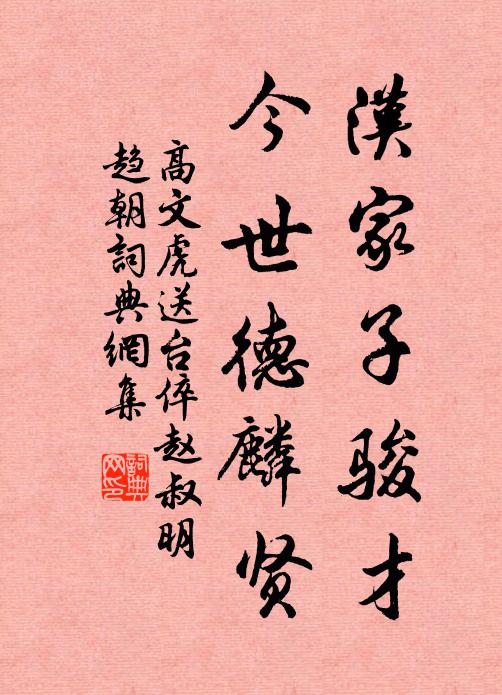 漢家子骏才
今世德麟贤
高文虎送台倅赵叔明
趋朝詞典網集
詞典网印